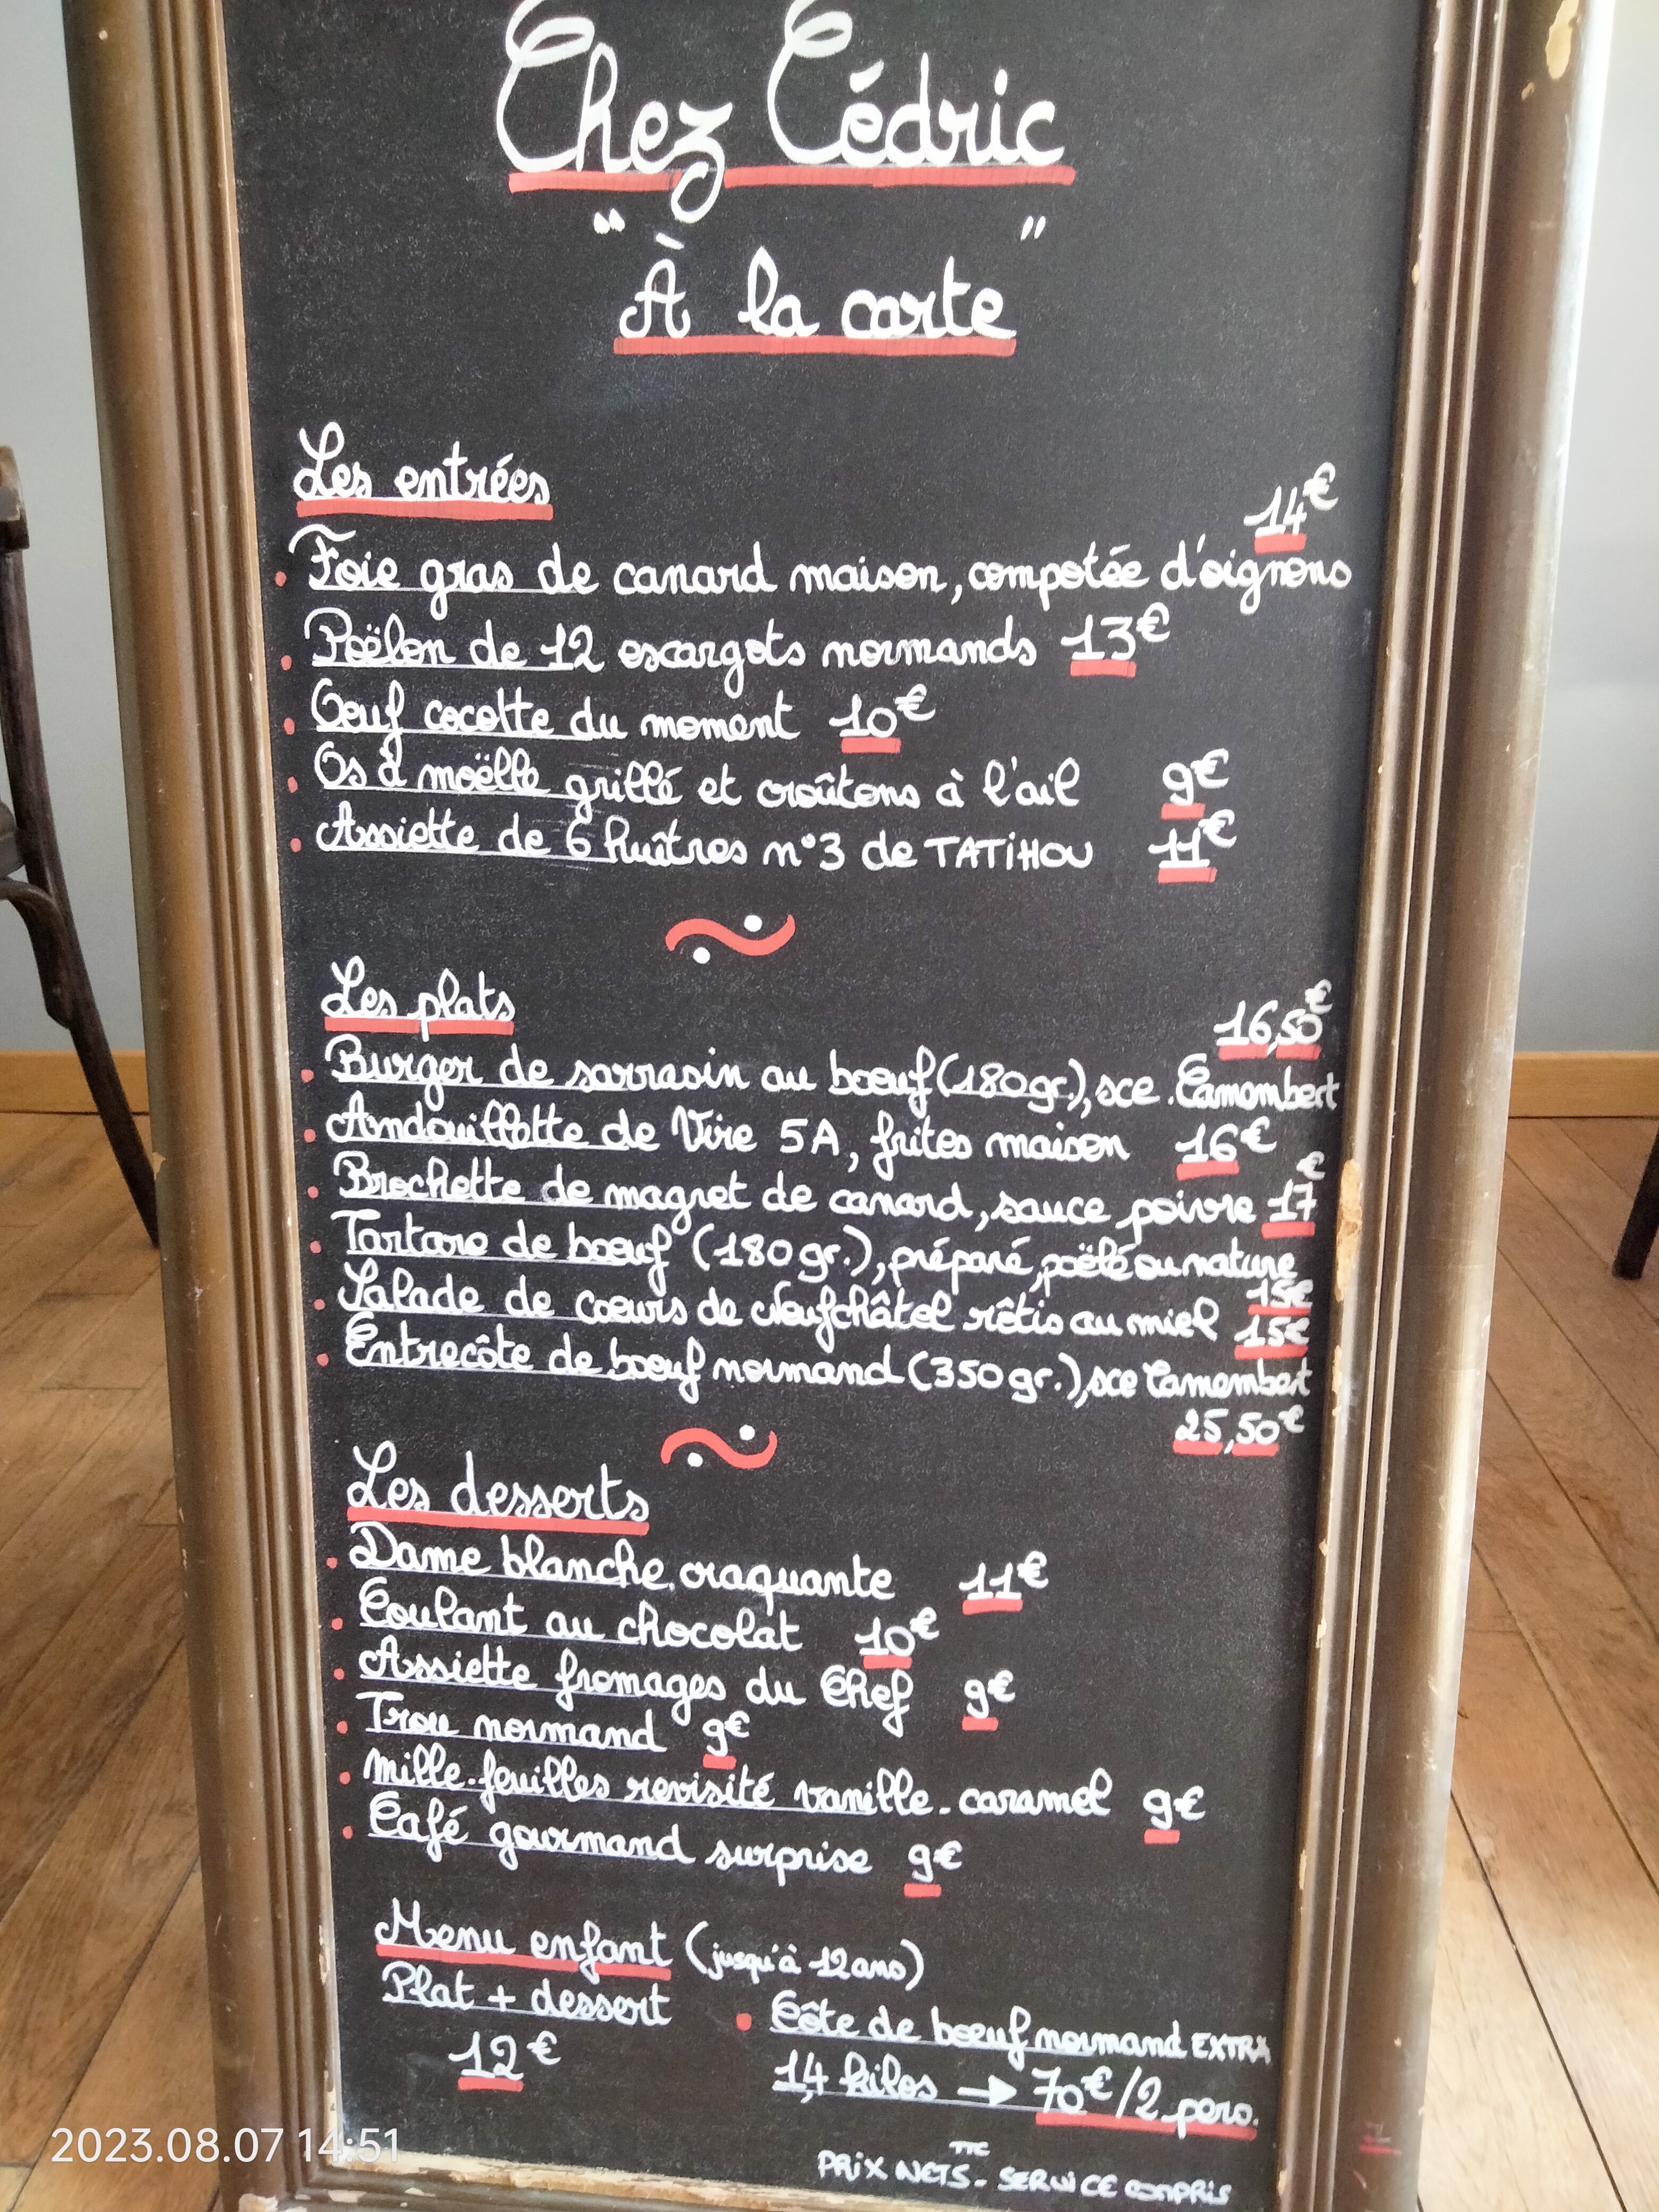 Chez Cédric
" À la carte "
Les entrées
14€
Foie gras de canard maison, compotée d'oignons
Poëlon de 12 escargots normands 13€
Oeuf cocotte du moment 10€
Os à moëlle grillé et croûtons à l'ail 9€
Assiette de 6 huîtres n°3 de TATiHOU 11€
Les plats
16,50€
Burger de sarrasin au boeuf (180gr.), sce. Camembert
Andouillette de Vire 5A, frites maison 16€
Brochette de magret de canard, sauce poivre 17€
Tartare de boeuf (180gr.), préparé, poëlé ou nature
15€
Salade de coeurs de Neufchâtel rôtis au miel 15€
Entrecôte de boeuf normand (350gr.), sce Camembert
25,50€
Les desserts
Dame blanche craquante 11€
Coulant au chocolat 10€
Assiette fromages du Chef 9€
Trou normand 9€
Mille-feuilles revisité vanille-caramel 9€
Café gourmand surprise 9€
Menu enfant (jusqu'à 12 ans)
Plat + dessert
12€
Côte de boeuf normand EXTRA
1,4 kilos → 70€/2 pers.
PRiX NETS TTC - SERViCE COMPRiS
2023.08.07 14:51